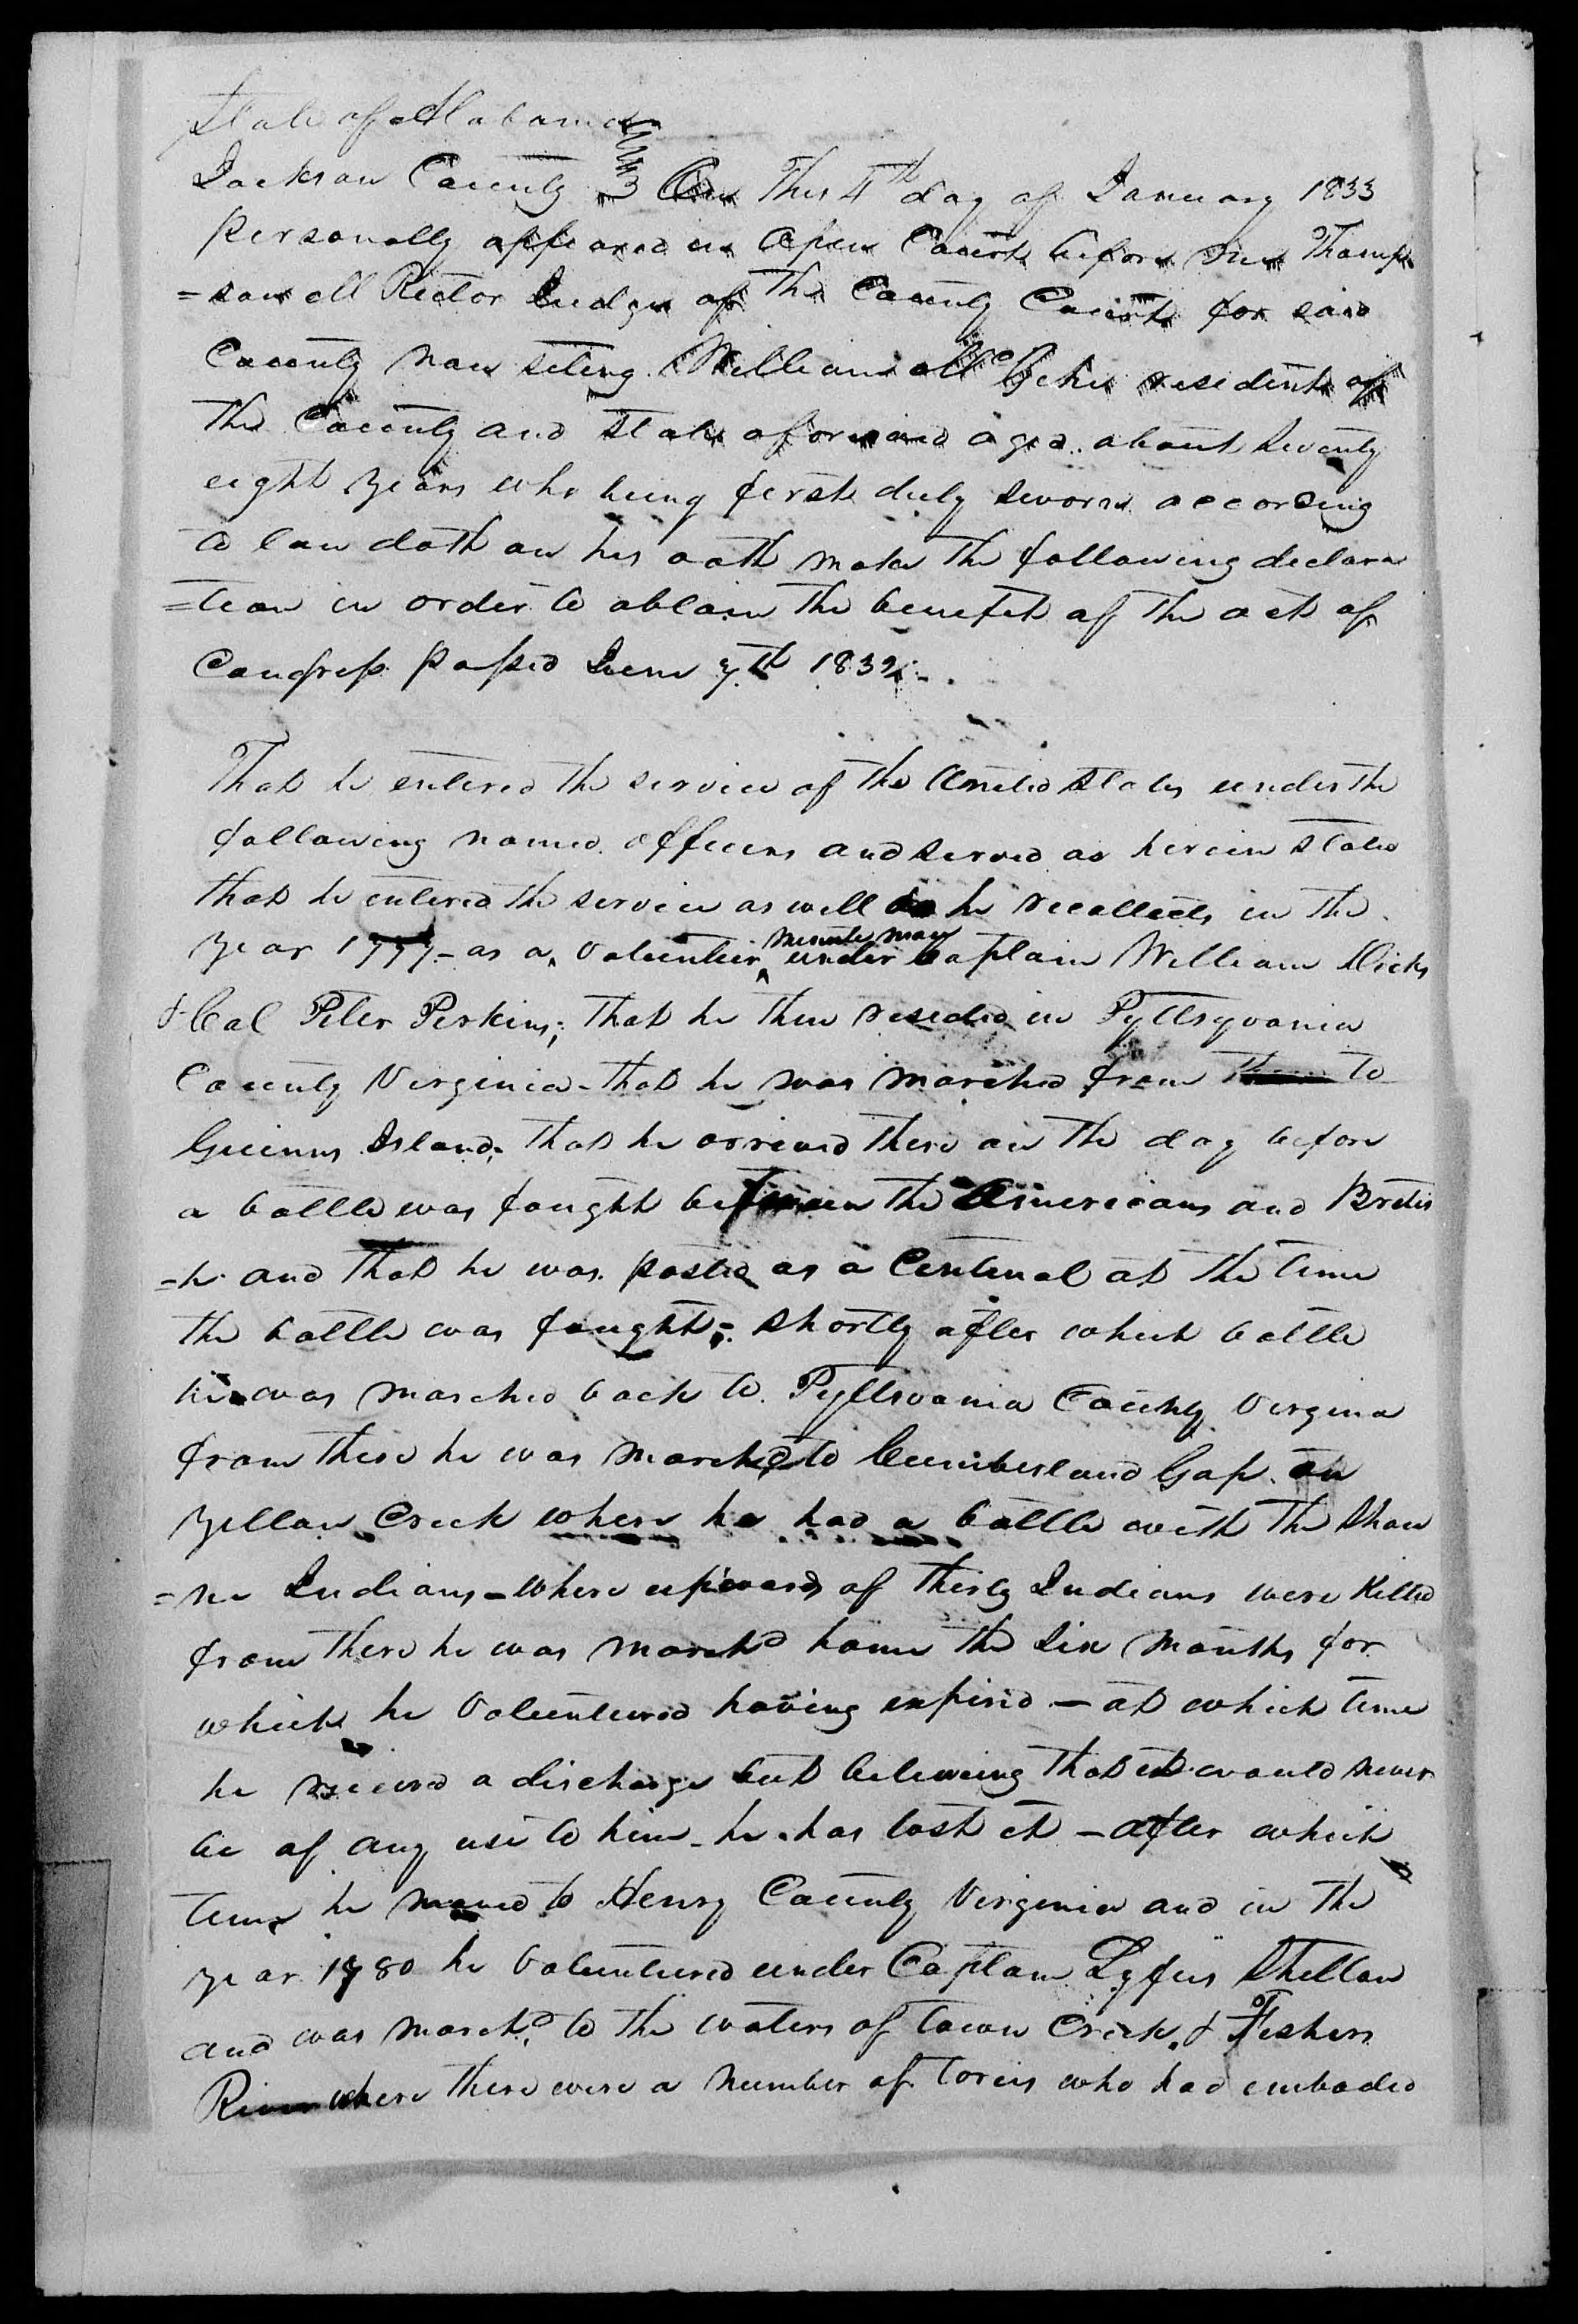 State of Alabama
Jackson County On This 4th day of January 1833
personally appeared in Open Court before me Thomp
=son M Rector Judge of The County Court for said
County now siting William McGehe resident of
The County and State aforesaid aged about Seventy
eight years who being first duly sworn according
to law doth on his oath make The following declara
=tion in order to obtain The benefit of The act of
Congress passed June 7th 1832.
That he entered the service of the United States under the
following named officers and served as herein stated
that he entered the service as well as he recollects in the
year 1777 - as a Volunteer minute man under Captain William Dicks
& Col Peter Perkins; That he then resided in Pyttsyvania
County Virginia - that he was marched from to
Guinns Island; that he arrived there on the day before
a battle was fought between the Americans and Britis
=h and that he was posted as a Centenal at the time
the battle was fought; shortly after which battle
he was marched back to Pyttsvania County Virgina
from there he was marched to Cumberland Gap on
Yellow Creek where he had a battle with the Shaw
=ne Indians - where upwards of thirty Indians were killed
from there he was march'd home the Six Months for
which he Volunteered having expired - at which time
he received a discharge but believing that it would never
be of any use to him - he has lost it - after which
time he moved to Henry County Virginia and in the
year 1780 he Volunteered under Captain Lyfus Shelton
and was march'd to the waters of Town Creek & Fishers
River where there were a number of Tories who had embodied